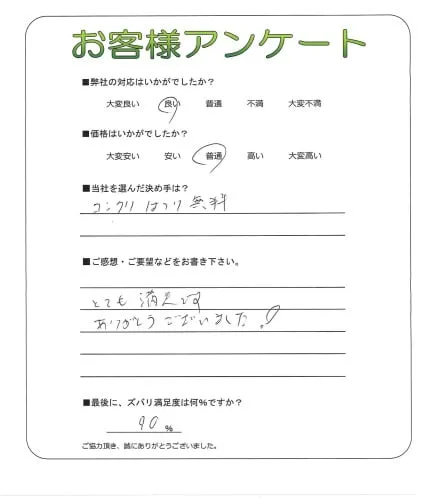 お客様アンケート
■弊社の対応はいかがでしたか?
大変良い 良い 普通 不満 大変不満
■価格はいかがでしたか?
大変安い 安い 普通 高い 大変高い
■当社を選んだ決め手は?
コンクリ はつり 無料
■ご感想・ご要望などをお書き下さい。
とても 満足です
ありがとうございました!
■最後に、ズバリ満足度は何%ですか?
90 %
ご協力頂き、誠にありがとうございました。